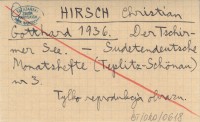 HIRSCH Christian
Gotthard 1936. Der Tschir-
mer See. — Sudetendeutsche
Monatshefte (Teplitz-Schönau)
nr 3.
Tylko reprodukcja obrazu.